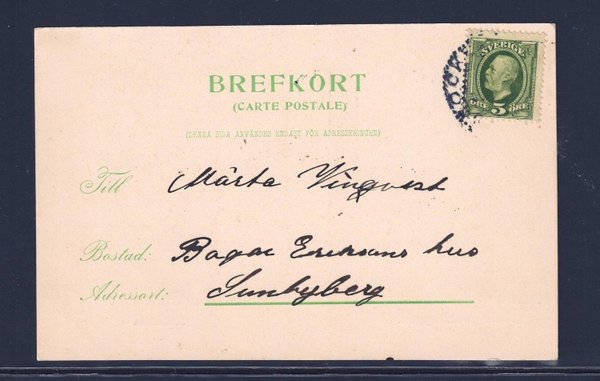 BREFKORT
(CARTE POSTALE)
(DENNA SIDA ANVÄNDES ENDAST FÖR ADRESSERINGEN)
SVERIGE
ÖRE 5 ÖRE
Till Märta Vingvest
Bostad: Bagar Eriksons hus
Adressort: Sunbyberg